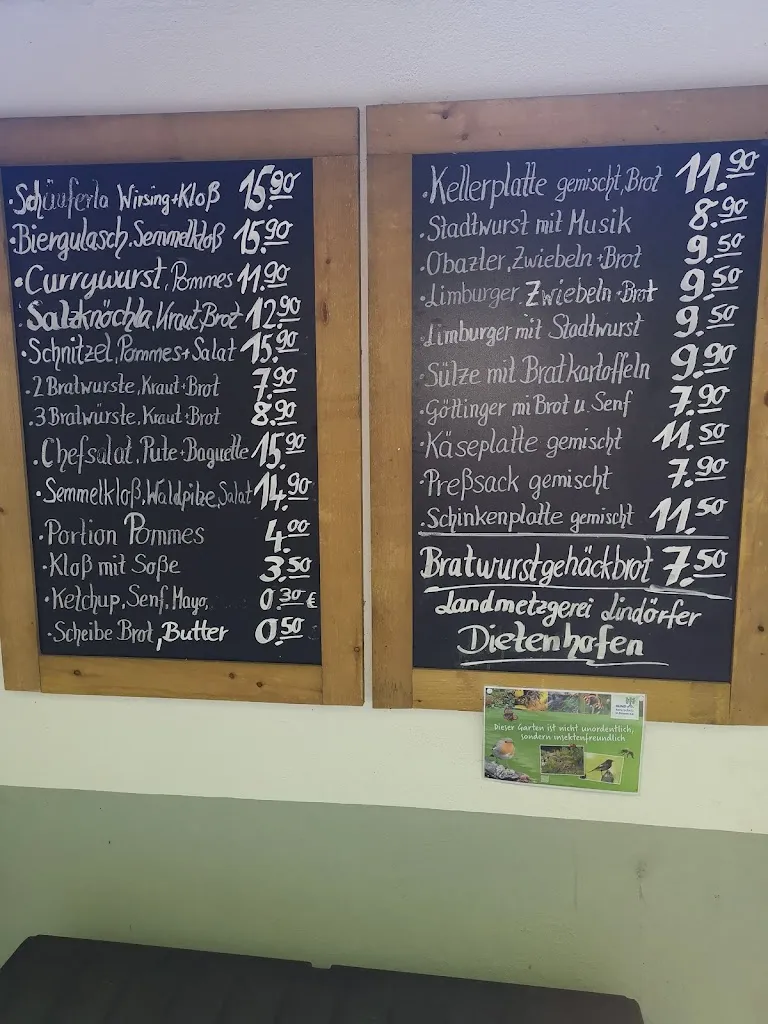 ·Schäuferla Wirsing+Kloß 15.90
·Biergulasch, Semmelkloß 15.90
·Currywurst, Pommes 11.90
·Salzknöchla, Kraut, Brot 12.90
·Schnitzel, Pommes+Salat 15.90
·2 Bratwürste, Kraut+Brot 7.90
·3 Bratwürste, Kraut+Brot 8.90
·Chefsalat, Pute+Baguette 15.90
·Semmelkloß, Waldpilze, Salat 14.90
·Portion Pommes 4.00
·Kloß mit Soße 3.50
·Ketchup, Senf, Mayo, 0.30€
·Scheibe Brot, Butter 0.50
·Kellerplatte gemischt, Brot 11.90
·Stadtwurst mit Musik 8.90
·Obazter, Zwiebeln+Brot 9.50
·Limburger, Zwiebeln+Brot 9.50
·Limburger mit Stadtwurst 9.50
·Sülze mit Bratkartoffeln 9.90
·Göttinger mi Brot u. Senf 7.90
·Käseplatte gemischt 11.50
·Preßsack gemischt 7.90
·Schinkenplatte gemischt 11.50
Bratwurstgehäckbrot 7.50
Landmetzgerei Lindörfer
Dietenhofen
Dieser Garten ist nicht unordentlich,
sondern insektenfreundlich